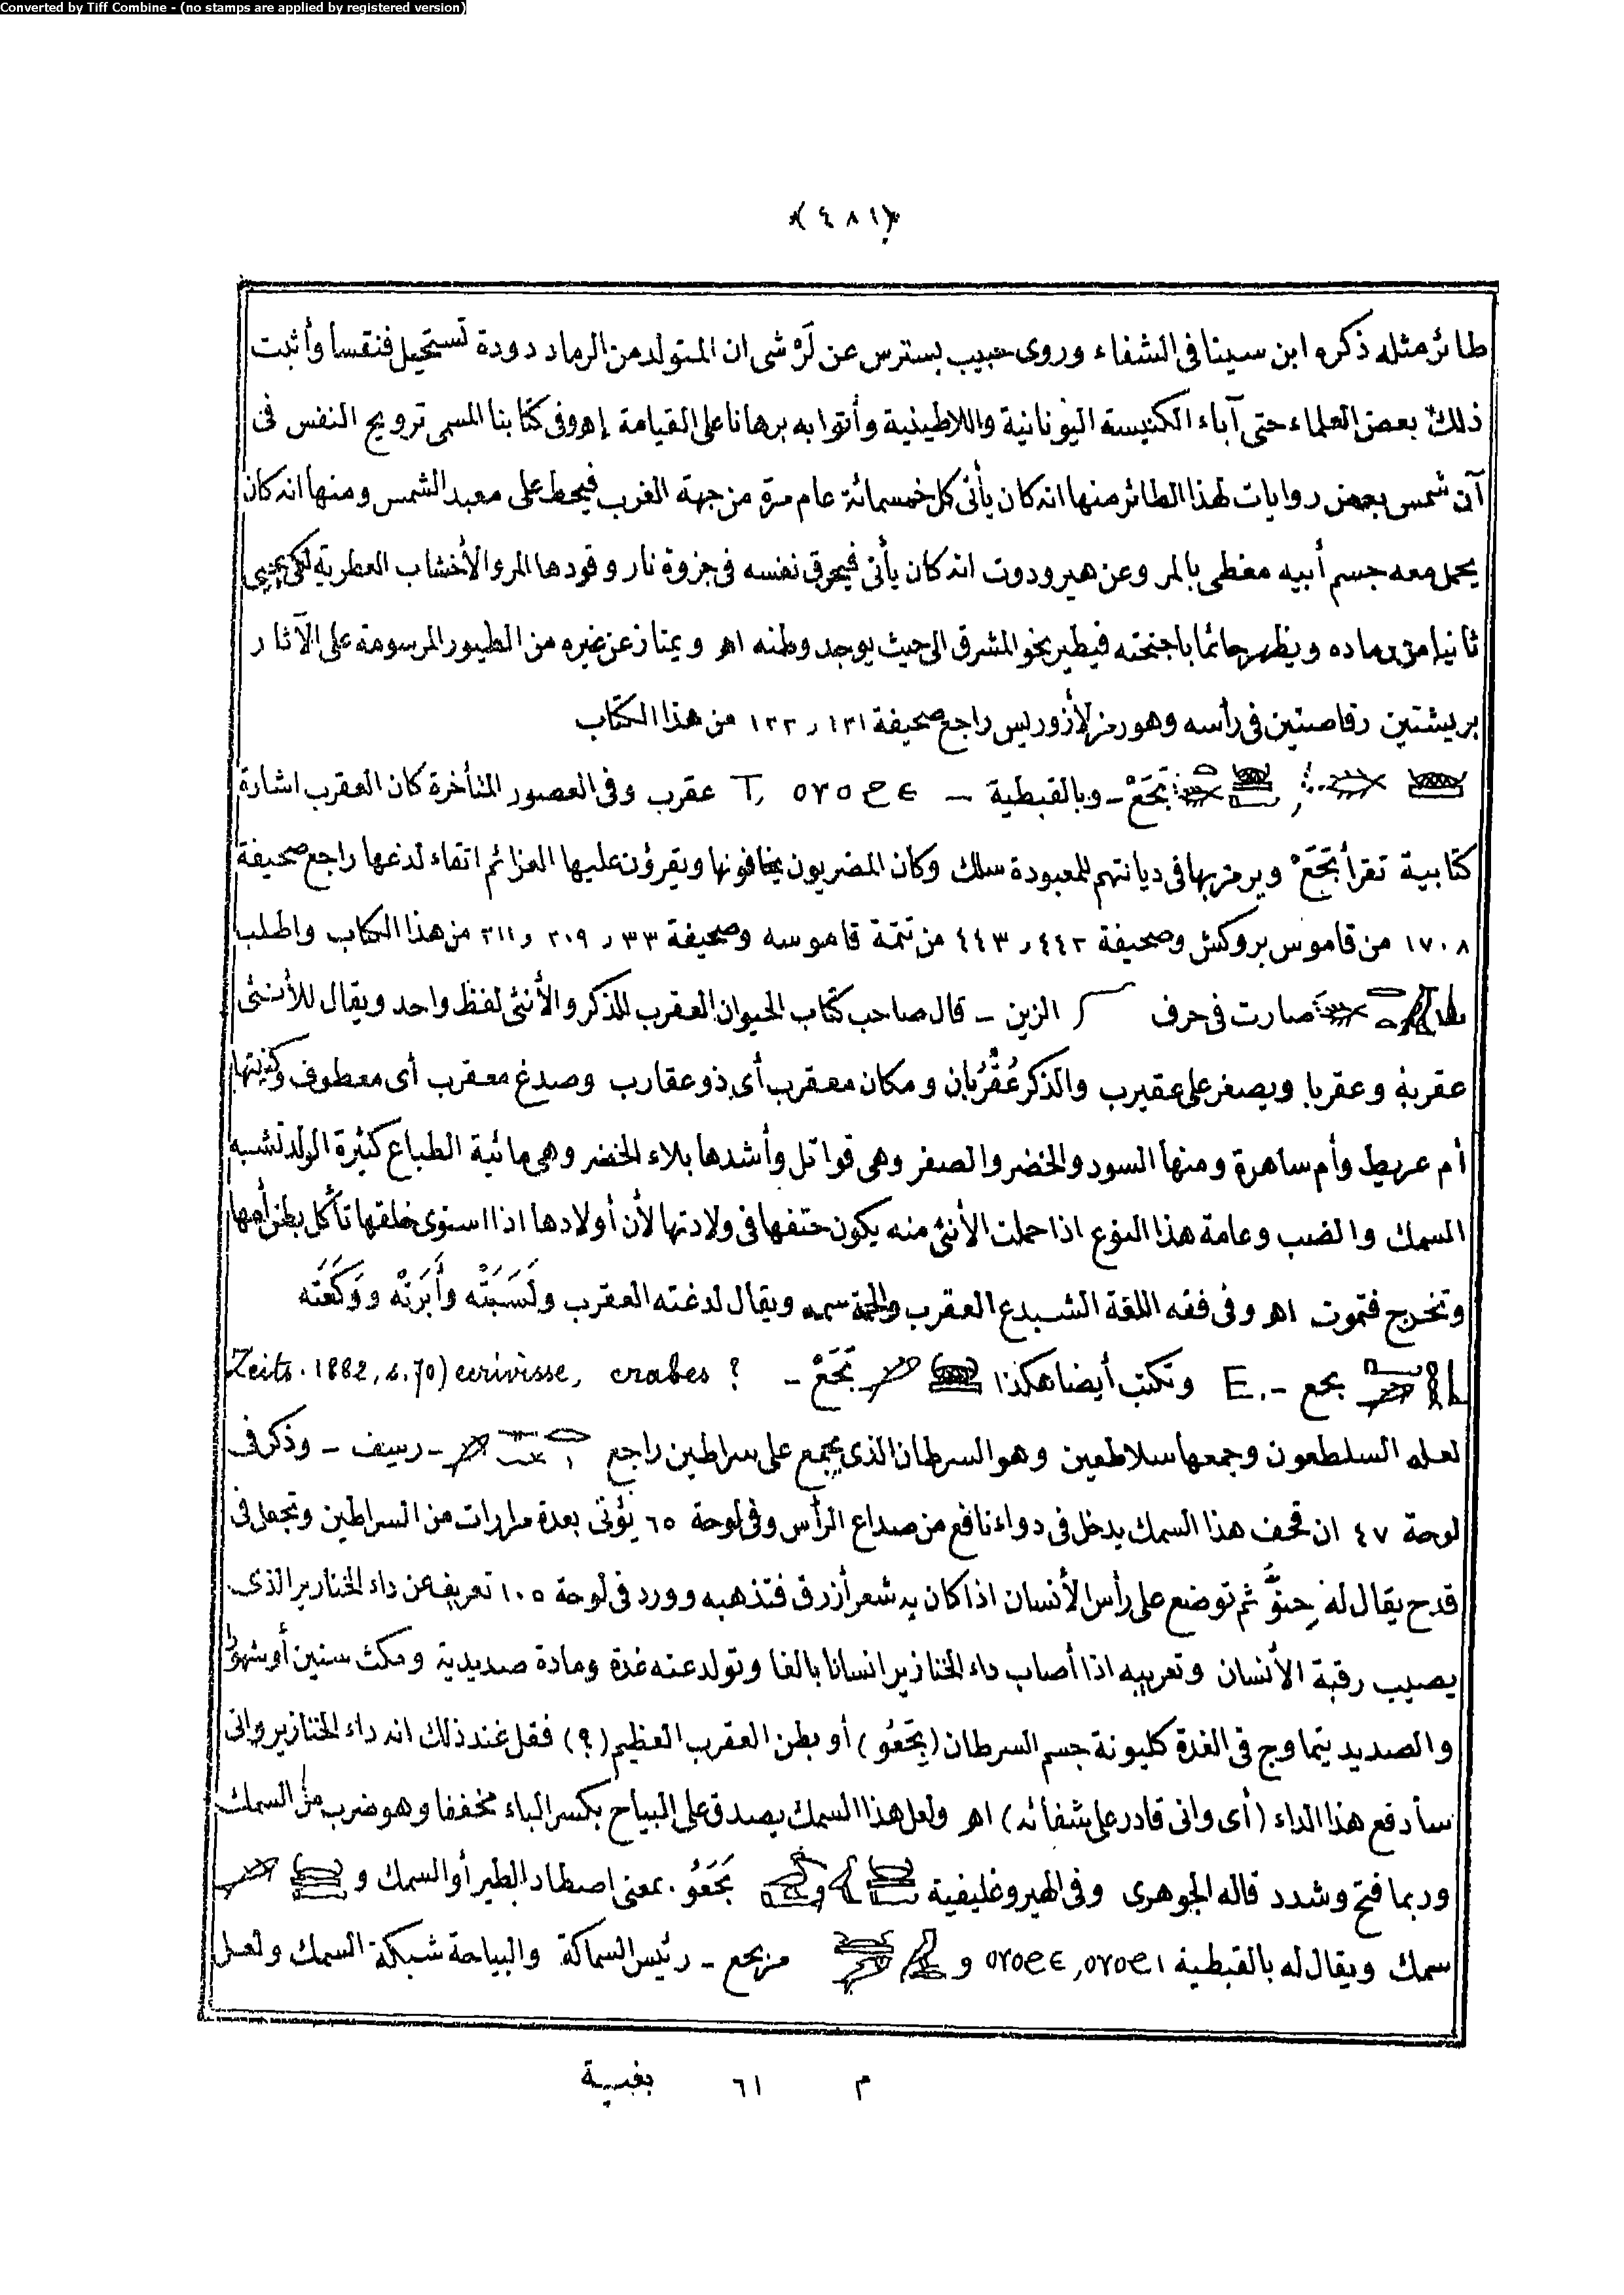 Converted by Tiff Combine - (no stamps are applied by registered version)
(٤٨١)
طائر مثله ذكره ابن سينا فى الشفاء وروى حبيب بسترس عن لرشى ان المتولد من الرماد دودة تستحيل فنقسا وأثبت
ذلك بعض العلماء حتى آباء الكنيسة اليونانية واللاطينية وأتوا به برهانا على القيامة إهـ وفى كتابنا المسمى ترويح النفس فى
آن شمس بعض روايات لهذا الطائر منها انه كان يأتى كل خمسمائة عام مرة من جهة الغرب فيحط على معبد الشمس ومنها انه كان
يحمل معه جسم أبيه مغطى بالمر وعن هيرودوت انه كان يأتى فيحرق نفسه فى جزوة نار وقودها المر والأخشاب العطرية لكى يحيى
ثانيا من رماده ويظهر حائما باجنحته فيطير نحو المشرق الى حيث يوجد وطنه اهـ ويمتاز عن غيره من الطيور المرسومة على الآثار
بريشتين رقاصتين فى رأسه وهو رمز لأزوريس راجع صحيفة ١٣١ر ١٣٢ من هذا الكتاب
بَحَعْ - وبالقبطية - T, عقرب وفى العصور المتأخرة كان العقرب اشارة
كتابية تقرأ بَحَعْ ويرمز بها فى ديانتهم للمعبودة سلك وكان المصريون يخافونها ويقرؤن عليها العزائم اتقاء لدغها راجع صحيفة
١٧٠٨ من قاموس بروكش وصحيفة ٤٤٢ر ٤٤٣ من تتمة قاموسه وصحيفة ٣٣ر ٢٠٩ر ٢١١ من هذا الكتاب واطلب
صارت فى حرف الزين - قال صاحب كتاب الحيوان العقرب للمذكر والأنثى لفظ واحد ويقال للأنثى
عقربة وعقربا ويصغر على عقيرب والذكر عُقْرُبان ومكان معقرب أى ذو عقارب وصدغ معقرب أى معطوف وكنيتها
أم عريط وأم ساهرة ومنها السود والخضر والصفر وهى قواتل وأشدها بلاء الخضر وهى مائية الطباع كثيرة الولد تشبه
السمك والضب وعامة هذا النوع اذا حملت الأنثى منه يكون حتفها فى ولادتها لأن أولادها اذا استوى خلقها تأكل بطن أمها
وتخرج فتموت اهـ وفى فقه اللغة الشبدع العقرب والحمة سمه ويقال لدغته العقرب ولَسَبَتْه وأَبَرَتْه ووَكَعَتَه
بحع - E. وتكتب أيضا هكذا بَحَعْ - Zeits. 1882, s. 70) ecrivisse, crabes ?
لعله السلطعون وجمعها سلاطعين وهو السرطان الذى يجمع على سراطين راجع - رسيف - وذكر فى
لوحة ٤٧ ان قحف هذا السمك يدخل فى دواء نافع من صداع الرأس وفى لوحة ٦٥ يؤتى بعدة مرارات من السراطين وتجعل فى
قدح يقال له حِنوّ ثم توضع على رأس الأنسان اذا كان به شعر أزرق فتذهبه وورد فى لوحة ١٠٥ تعريف عن داء الخنازير الذى
يصيب رقبة الأنسان وتعريبه اذا أصاب داء الخنازير انسانا بالغا وتولد عنه غدة ومادة صديدية ومكث سنين أو شهورا
والصديد يتماوج فى الغدة كليونة جسم السرطان (بَحَعُو) أو بطن العقرب العظيم (؟) فقل عند ذلك انه داء الخنازير وانى
سأدفع هذا الداء (أى وانى قادر على شفائه) اهـ ولعل هذا السمك يصدق على البياح بكسر الباء مخففا وهو ضرب من السمك
وربما فتح وشدد قاله الجوهرى وفى الهيروغليفية و بَحَعُو. بمعنى اصطاد الطير أو السمك و
سمك ويقال له بالقبطية و من بحع - رئيس السماكة والبياحة شبكة السمك ولعل
م ٦١ بغية